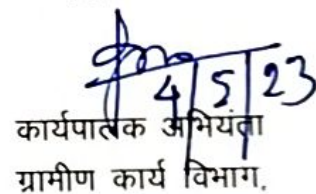 4/5/23
कार्यपालक अभियंता
ग्रामीण कार्य विभाग,